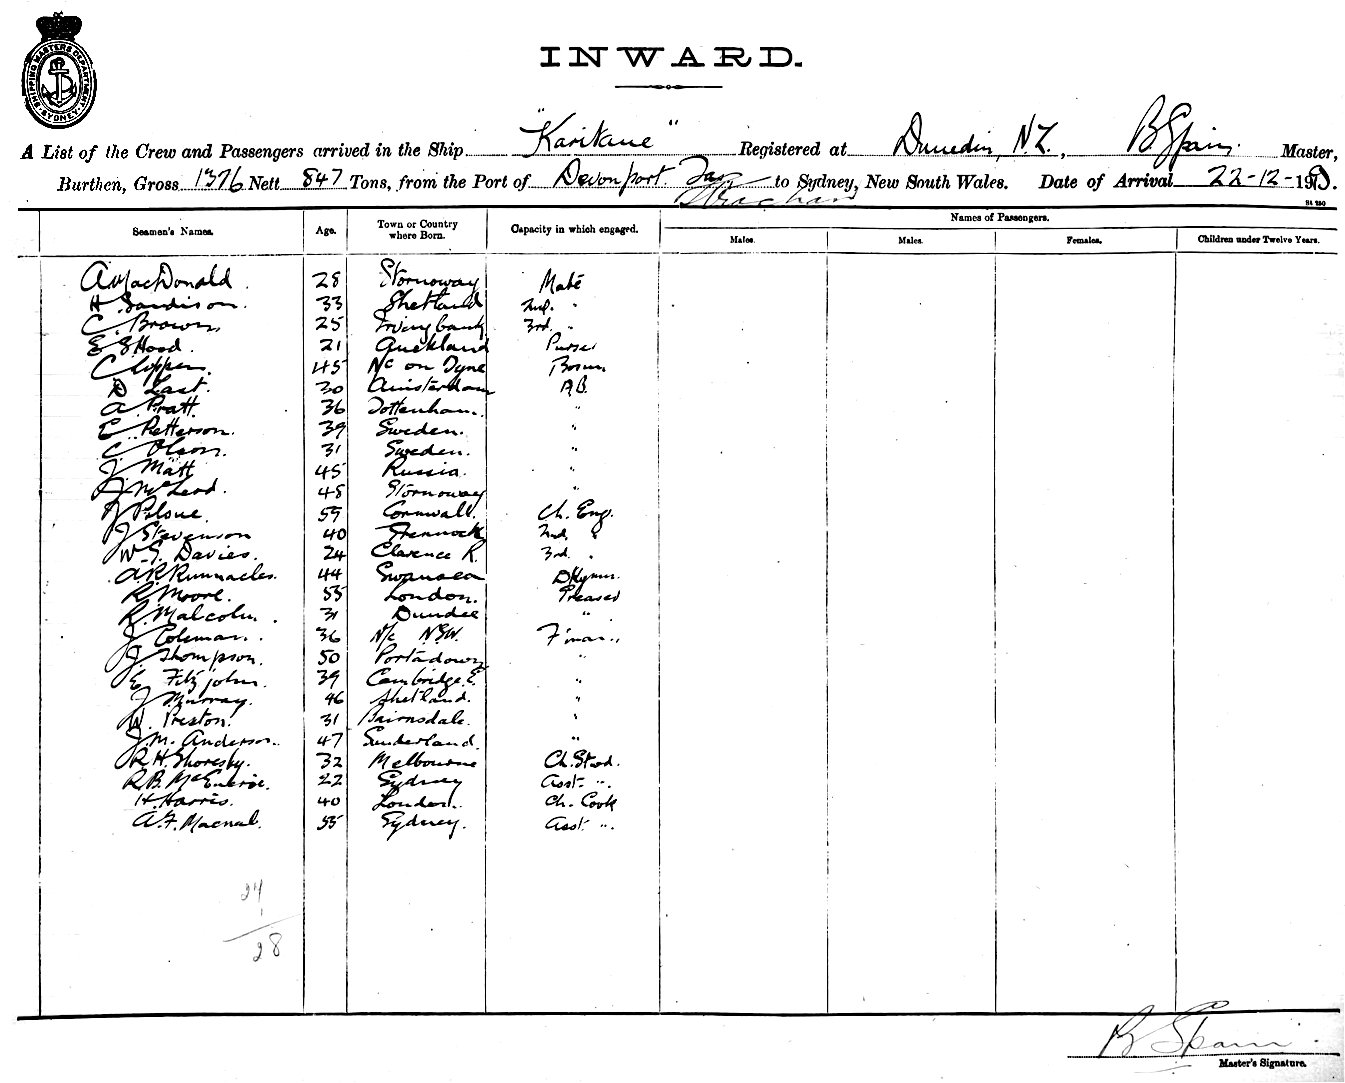 SHIPPING MASTERS DEPARTMENT SYDNEY
INWARD.
A List of the Crew and Passengers arrived in the Ship "Karitane" Registered at Dunedin, N.Z., B Spain. Master,
Burthen, Gross 1376 Nett 847 Tons, from the Port of Devonport. Tas to Sydney, New South Wales. Date of Arrival 22-12-19
Strachan
Seamen's Names. Age. Town or Country where Born. Capacity in which engaged. Names of Passengers.
Males. Males. Females. Children under Twelve Years.
A MacDonald 28 Stornoway Mate
H. Sandison. 33 Shetland 2nd. "
C. Brown, 25 Irvinebank 3rd. "
E Hood. 21 Auckland Purser
C 45 N/c on Tyne Bosun
D Last. 30 Amsterdam A.B.
A Pratt. 36 Tottenham. "
E. Petterson. 39 Sweden. "
C Olson. 31 Sweden. "
J Matt 45 Russia. "
McLeod. 48 Stornoway "
59 Cornwall. Ch. Eng.
J Stevenson 40 Greenock 2nd "
W.G. Davies. 24 Clarence R. 3rd. "
A.R. Runnacles. 44 Swansea Dkyman.
R Moore. 55 London. Greaser
R. Malcolm. 31 Dundee "
J Coleman. 36 N/c N.S.W. Fireman.
J. Thompson. 50 Portadown "
E Fitzjohn. 39 Cambridge. E. "
J Murray. 46 Shetland. "
W. Preston. 31 Bairnsdale. "
J.M. Anderson. 47 Sunderland. "
R.H. Shoresby. 32 Melbourne Ch. Stwd.
R.B. McEnerie. 22 Sydney Asst. ".
H. Harris. 40 London. Ch. Cook
A.F. Macnab. 55 Sydney. Asst. ".
27
1
28
B Spain.
Master's Signature.